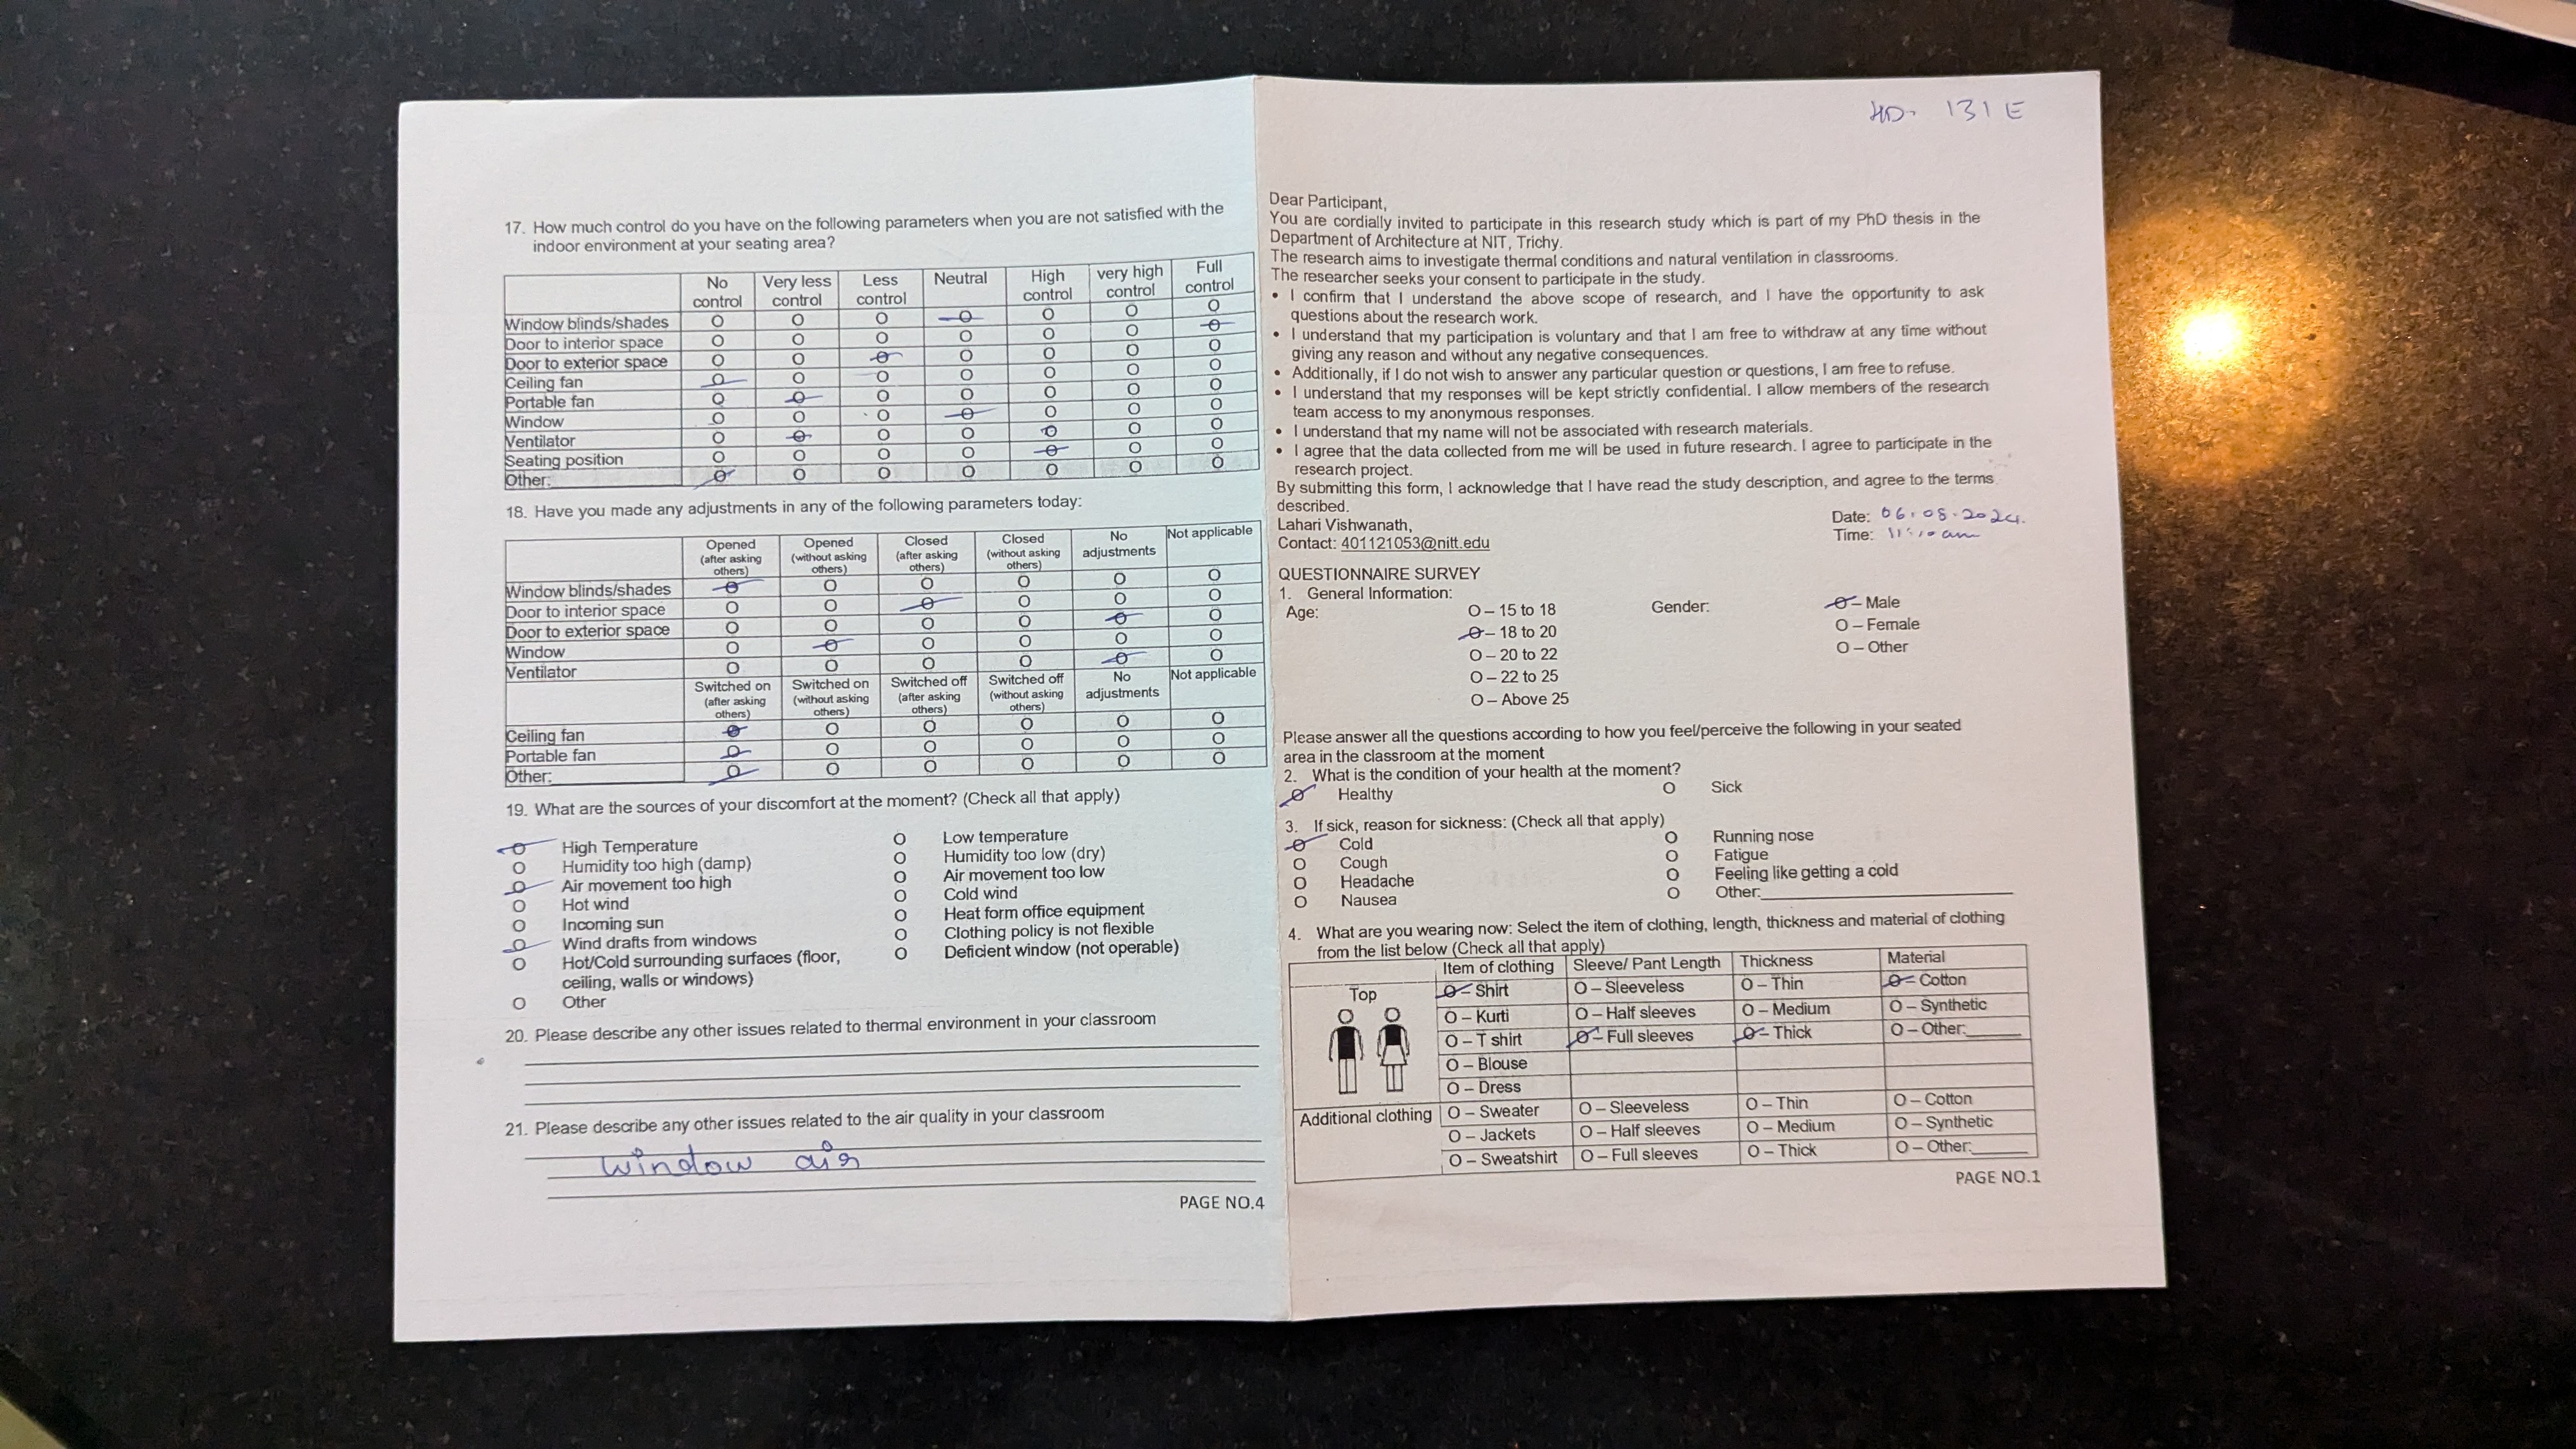 17. How much control do you have on the following parameters when you are not satisfied with the
indoor environment at your seating area?
No control Very less control Less control Neutral High control very high control Full control
Window blinds/shades O O O O O O O
Door to interior space O O O O O O O
Door to exterior space O O O O O O O
Ceiling fan O O O O O O O
Portable fan O O O O O O O
Window O O O O O O O
Ventilator O O O O O O O
Seating position O O O O O O O
Other: O O O O O O O
18. Have you made any adjustments in any of the following parameters today:
Opened (after asking others) Opened (without asking others) Closed (after asking others) Closed (without asking others) No adjustments Not applicable
Window blinds/shades O O O O O O
Door to interior space O O O O O O
Door to exterior space O O O O O O
Window O O O O O O
Ventilator O O O O O O
Switched on (after asking others) Switched on (without asking others) Switched off (after asking others) Switched off (without asking others) No adjustments Not applicable
Ceiling fan O O O O O O
Portable fan O O O O O O
Other: O O O O O O
19. What are the sources of your discomfort at the moment? (Check all that apply)
O High Temperature O Low temperature
O Humidity too high (damp) O Humidity too low (dry)
O Air movement too high O Air movement too low
O Hot wind O Cold wind
O Incoming sun O Heat form office equipment
O Wind drafts from windows O Clothing policy is not flexible
O Hot/Cold surrounding surfaces (floor, O Deficient window (not operable)
ceiling, walls or windows)
O Other
20. Please describe any other issues related to thermal environment in your classroom
21. Please describe any other issues related to the air quality in your classroom
window air
PAGE NO.4
131 E
Dear Participant,
You are cordially invited to participate in this research study which is part of my PhD thesis in the
Department of Architecture at NIT, Trichy.
The research aims to investigate thermal conditions and natural ventilation in classrooms.
The researcher seeks your consent to participate in the study.
• I confirm that I understand the above scope of research, and I have the opportunity to ask
questions about the research work.
• I understand that my participation is voluntary and that I am free to withdraw at any time without
giving any reason and without any negative consequences.
• Additionally, if I do not wish to answer any particular question or questions, I am free to refuse.
• I understand that my responses will be kept strictly confidential. I allow members of the research
team access to my anonymous responses.
• I understand that my name will not be associated with research materials.
• I agree that the data collected from me will be used in future research. I agree to participate in the
research project.
By submitting this form, I acknowledge that I have read the study description, and agree to the terms
described.
Lahari Vishwanath,
Contact: 401121053@nitt.edu
Date: 06.08.2024.
Time: 11:10 am
QUESTIONNAIRE SURVEY
1. General Information:
Age: O – 15 to 18 Gender: O – Male
O – 18 to 20 O – Female
O – 20 to 22 O – Other
O – 22 to 25
O – Above 25
Please answer all the questions according to how you feel/perceive the following in your seated
area in the classroom at the moment
2. What is the condition of your health at the moment?
O Healthy O Sick
3. If sick, reason for sickness: (Check all that apply)
O Cold O Running nose
O Cough O Fatigue
O Headache O Feeling like getting a cold
O Nausea O Other:
4. What are you wearing now: Select the item of clothing, length, thickness and material of clothing
from the list below (Check all that apply)
Item of clothing Sleeve/ Pant Length Thickness Material
Top O – Shirt O – Sleeveless O – Thin O – Cotton
O – Kurti O – Half sleeves O – Medium O – Synthetic
O – T shirt O – Full sleeves O – Thick O – Other:
O – Blouse
O – Dress
Additional clothing O – Sweater O – Sleeveless O – Thin O – Cotton
O – Jackets O – Half sleeves O – Medium O – Synthetic
O – Sweatshirt O – Full sleeves O – Thick O – Other:
PAGE NO.1